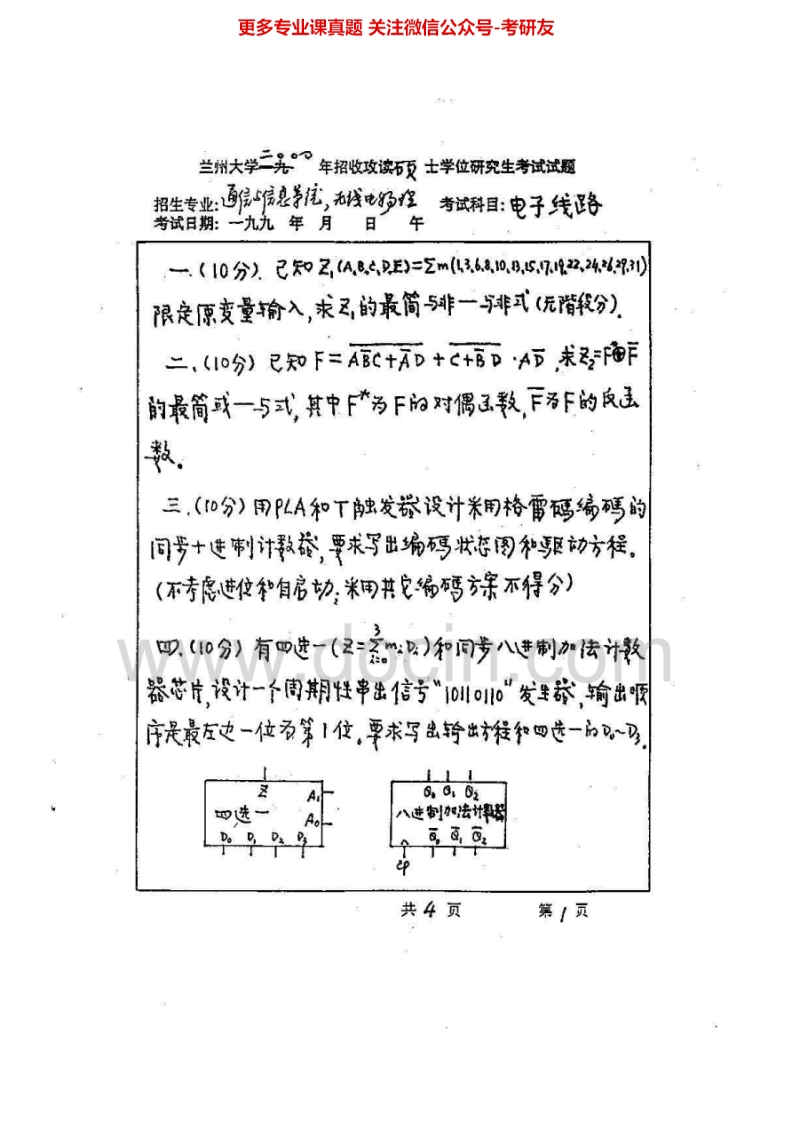 更多专业课真题 关注微信公众号-考研友
兰州大学二〇〇〇年招收攻读硕士学位研究生考试试题
招生专业:通信与信息系统,无线电物理 考试科目:电子线路
考试日期:一九九 年 月 日 午
一.(10分).已知Z₁(A,B,C,D,E)=Σm(1,3,6,8,10,13,15,17,19,22,24,26,29,31)
限定原变量输入,求Z₁的最简与非一与非式(无階段分).
二、(10分)已知F= , 求Z₂=F⊕F̅
的最简或一与式,其中F*为F的对偶函数,F̅为F的反函
数。
三.(10分)用PLA和T触发器设计采用格雷码编码的
同步十进制计数器,要求写出编码状态图和驱动方程。
(不考虑进位和自启动;采用其它编码方案不得分)
四.(10分)有四选一(Z=Σ³ᵢ₌₀mᵢDᵢ)和同步八进制加法计数
器芯片,设计一个周期性串出信号"10110110"发生器,输出顺
序是最左边一位为第1位。要求写出输出方程和四选一的D₀~D₃.
Z A₁ Q₀ Q₁ Q₂
四选一 A₀ 八进制加法计数器
D₀ D₁ D₂ D₃ Q̅₀ Q̅₁ Q̅₂
cp
共4页 第1页
www.docin.com